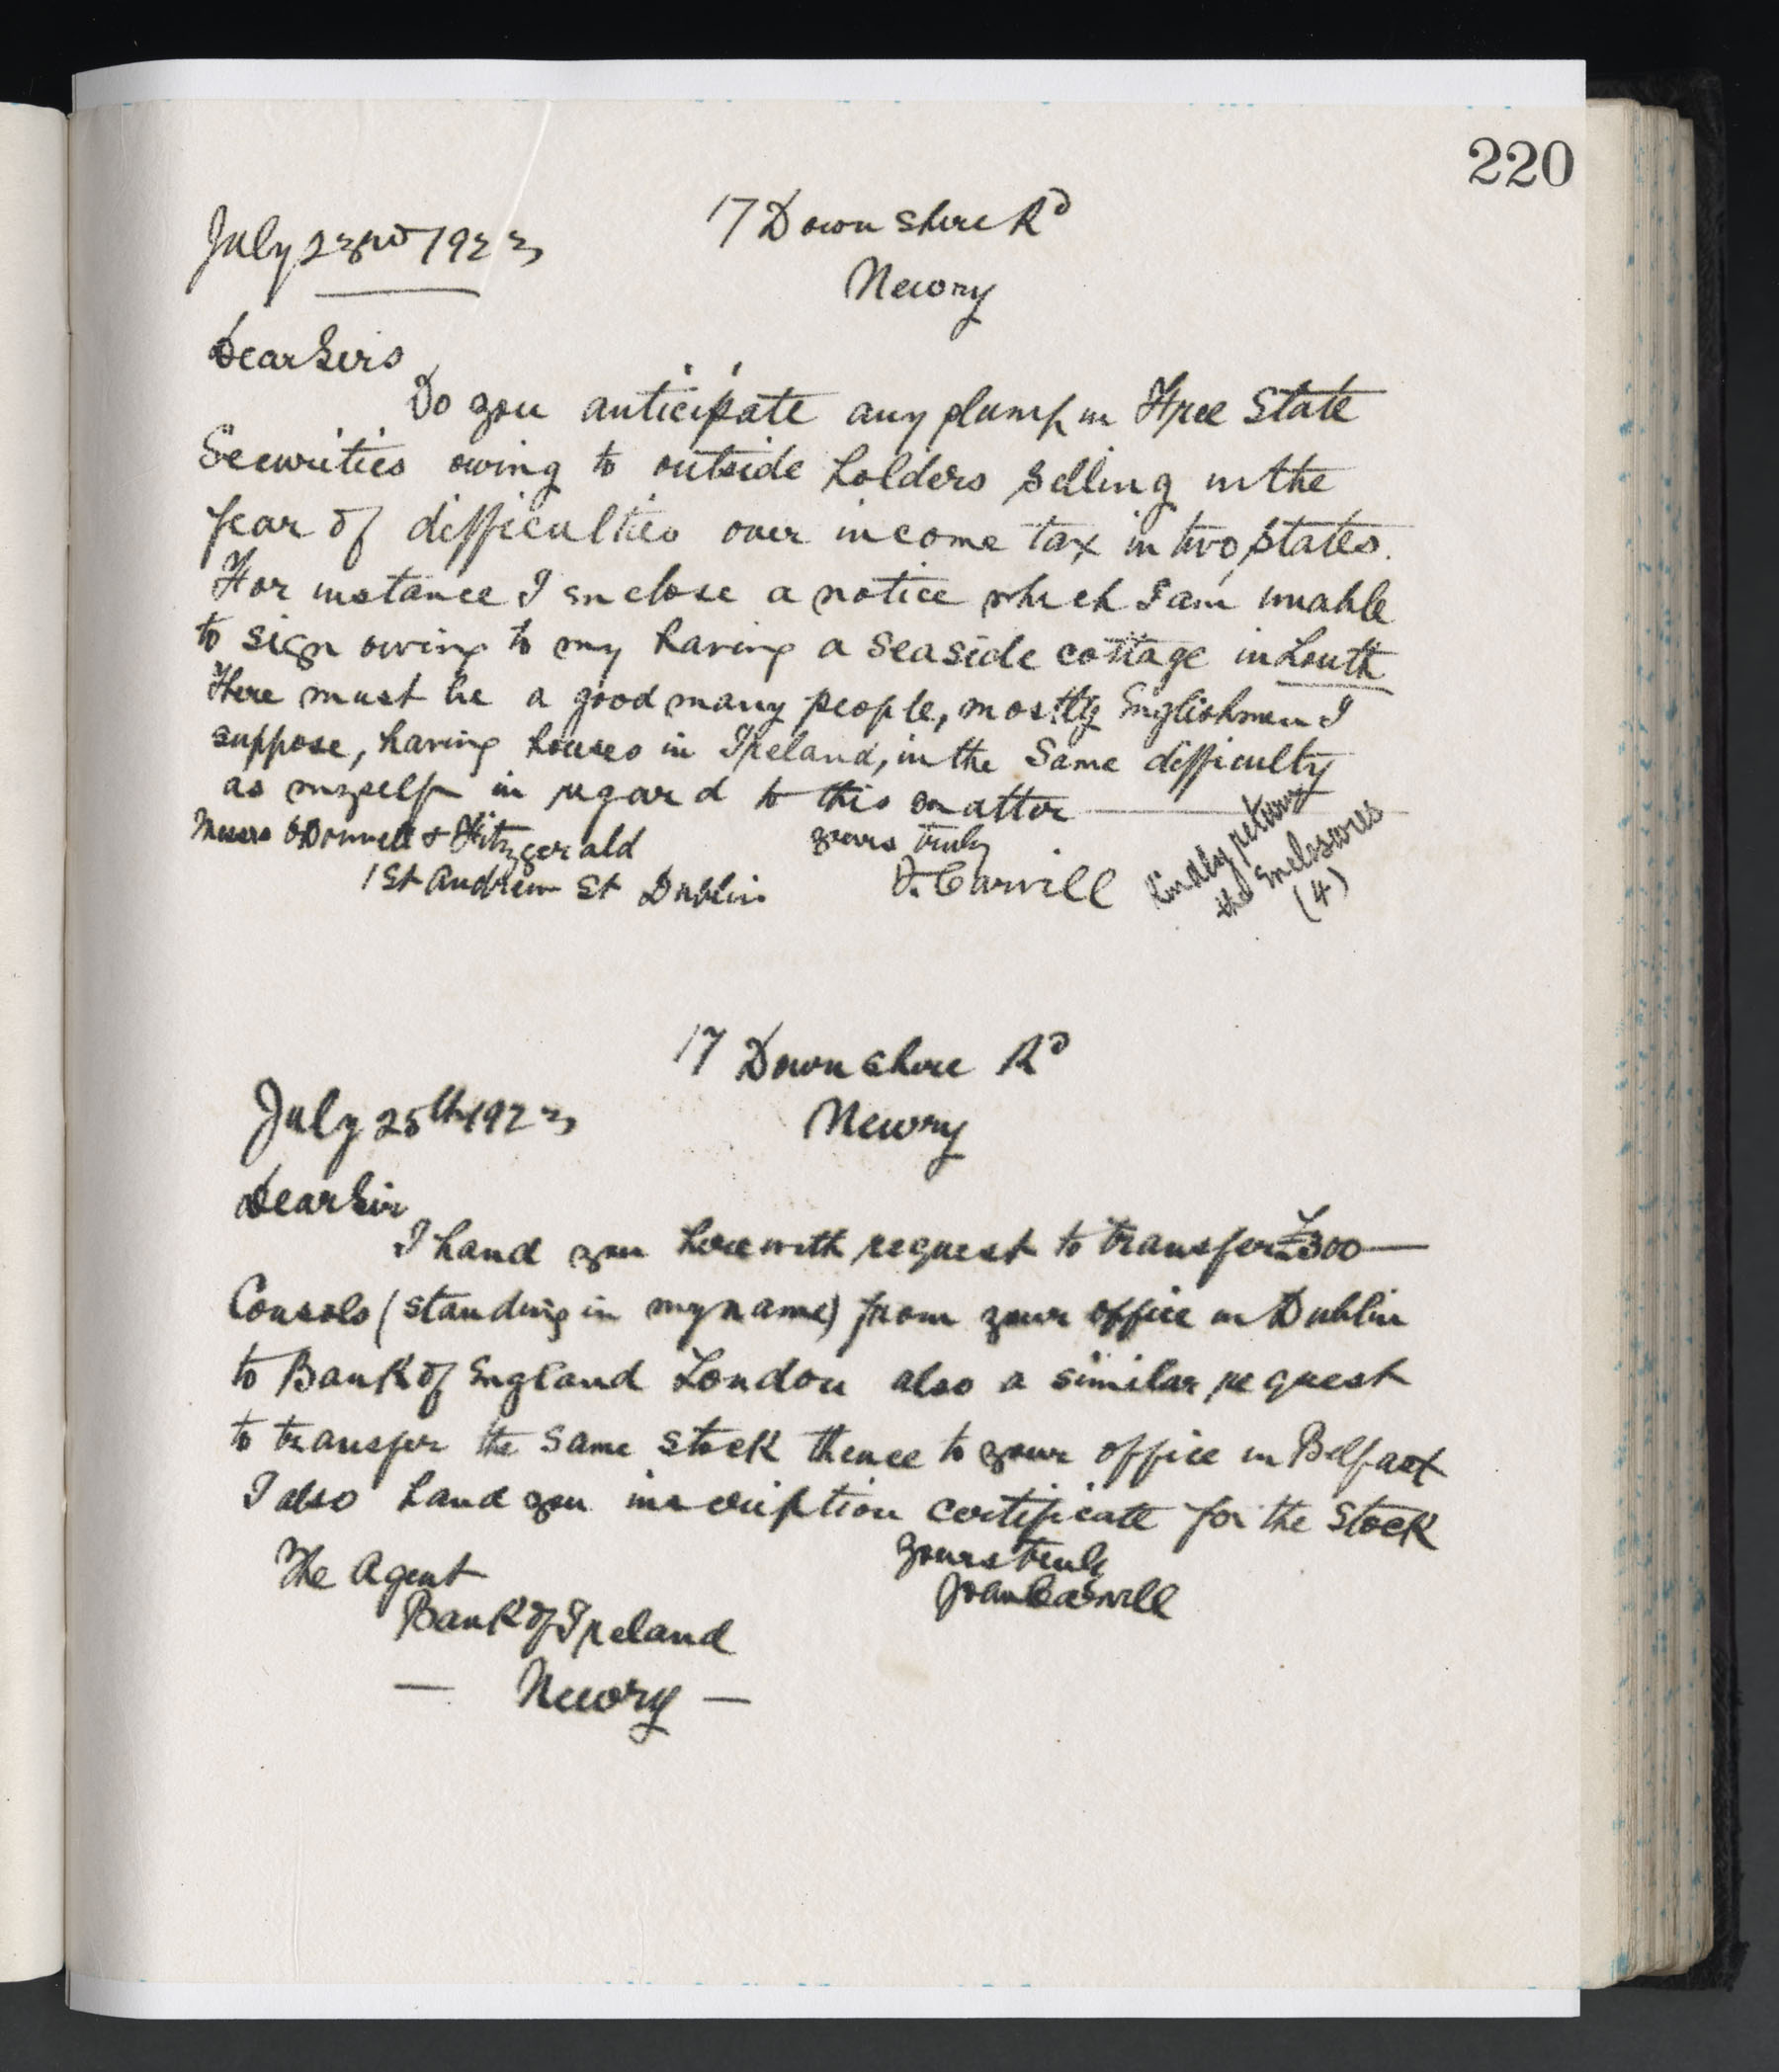 220
17 Downshire Rd
July 23rd 1923
Newry
Dear Sirs
Do you anticipate any slump in Free State
Securities owing to outside holders selling in the
fear of difficulties over income tax in two states.
For instance I enclose a notice which I am unable
to sign owing to my having a seaside cottage in Louth
There must be a good many people, mostly Englishmen I
suppose, having houses in Ireland, in the same difficulty
as myself in regard to this matter
Messrs O'Donnell & Fitzgerald
1 St Andrew St Dublin
yours truly
J. Carvill
Kindly return
the Enclosures
(4)
17 Downshire Rd
July 25th 1923
Newry
Dear Sir
I hand you herewith request to transfer £300
Consols (standing in my name) from your office in Dublin
to Bank of England London also a similar request
to transfer the same stock thence to your office in Belfast
I also hand you inscription certificate for the stock
Yours truly
John Carvill
The Agent
Bank of Ireland
— Newry —